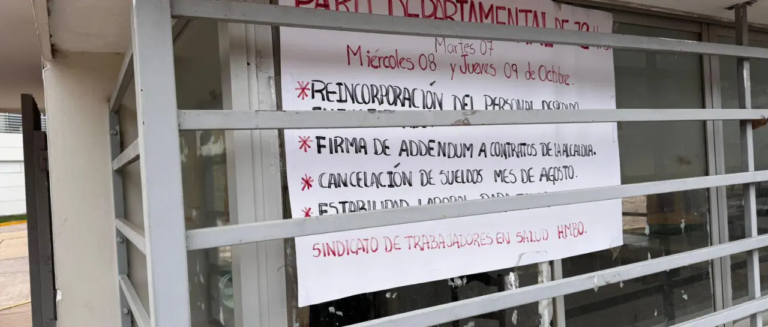 PARO DEPARTAMENTAL DE 72 Hrs
Martes 07
Miércoles 08 y Jueves 09 de Octubre
* REINCORPORACIÓN DEL PERSONAL
* FIRMA DE ADDENDUM A CONTRATOS DE LA ALCALDIA.
* CANCELACIÓN DE SUELDOS MES DE AGOSTO.
* ESTABILIDAD LABORAL PARA
SINDICATO DE TRABAJADORES EN SALUD HMBO.